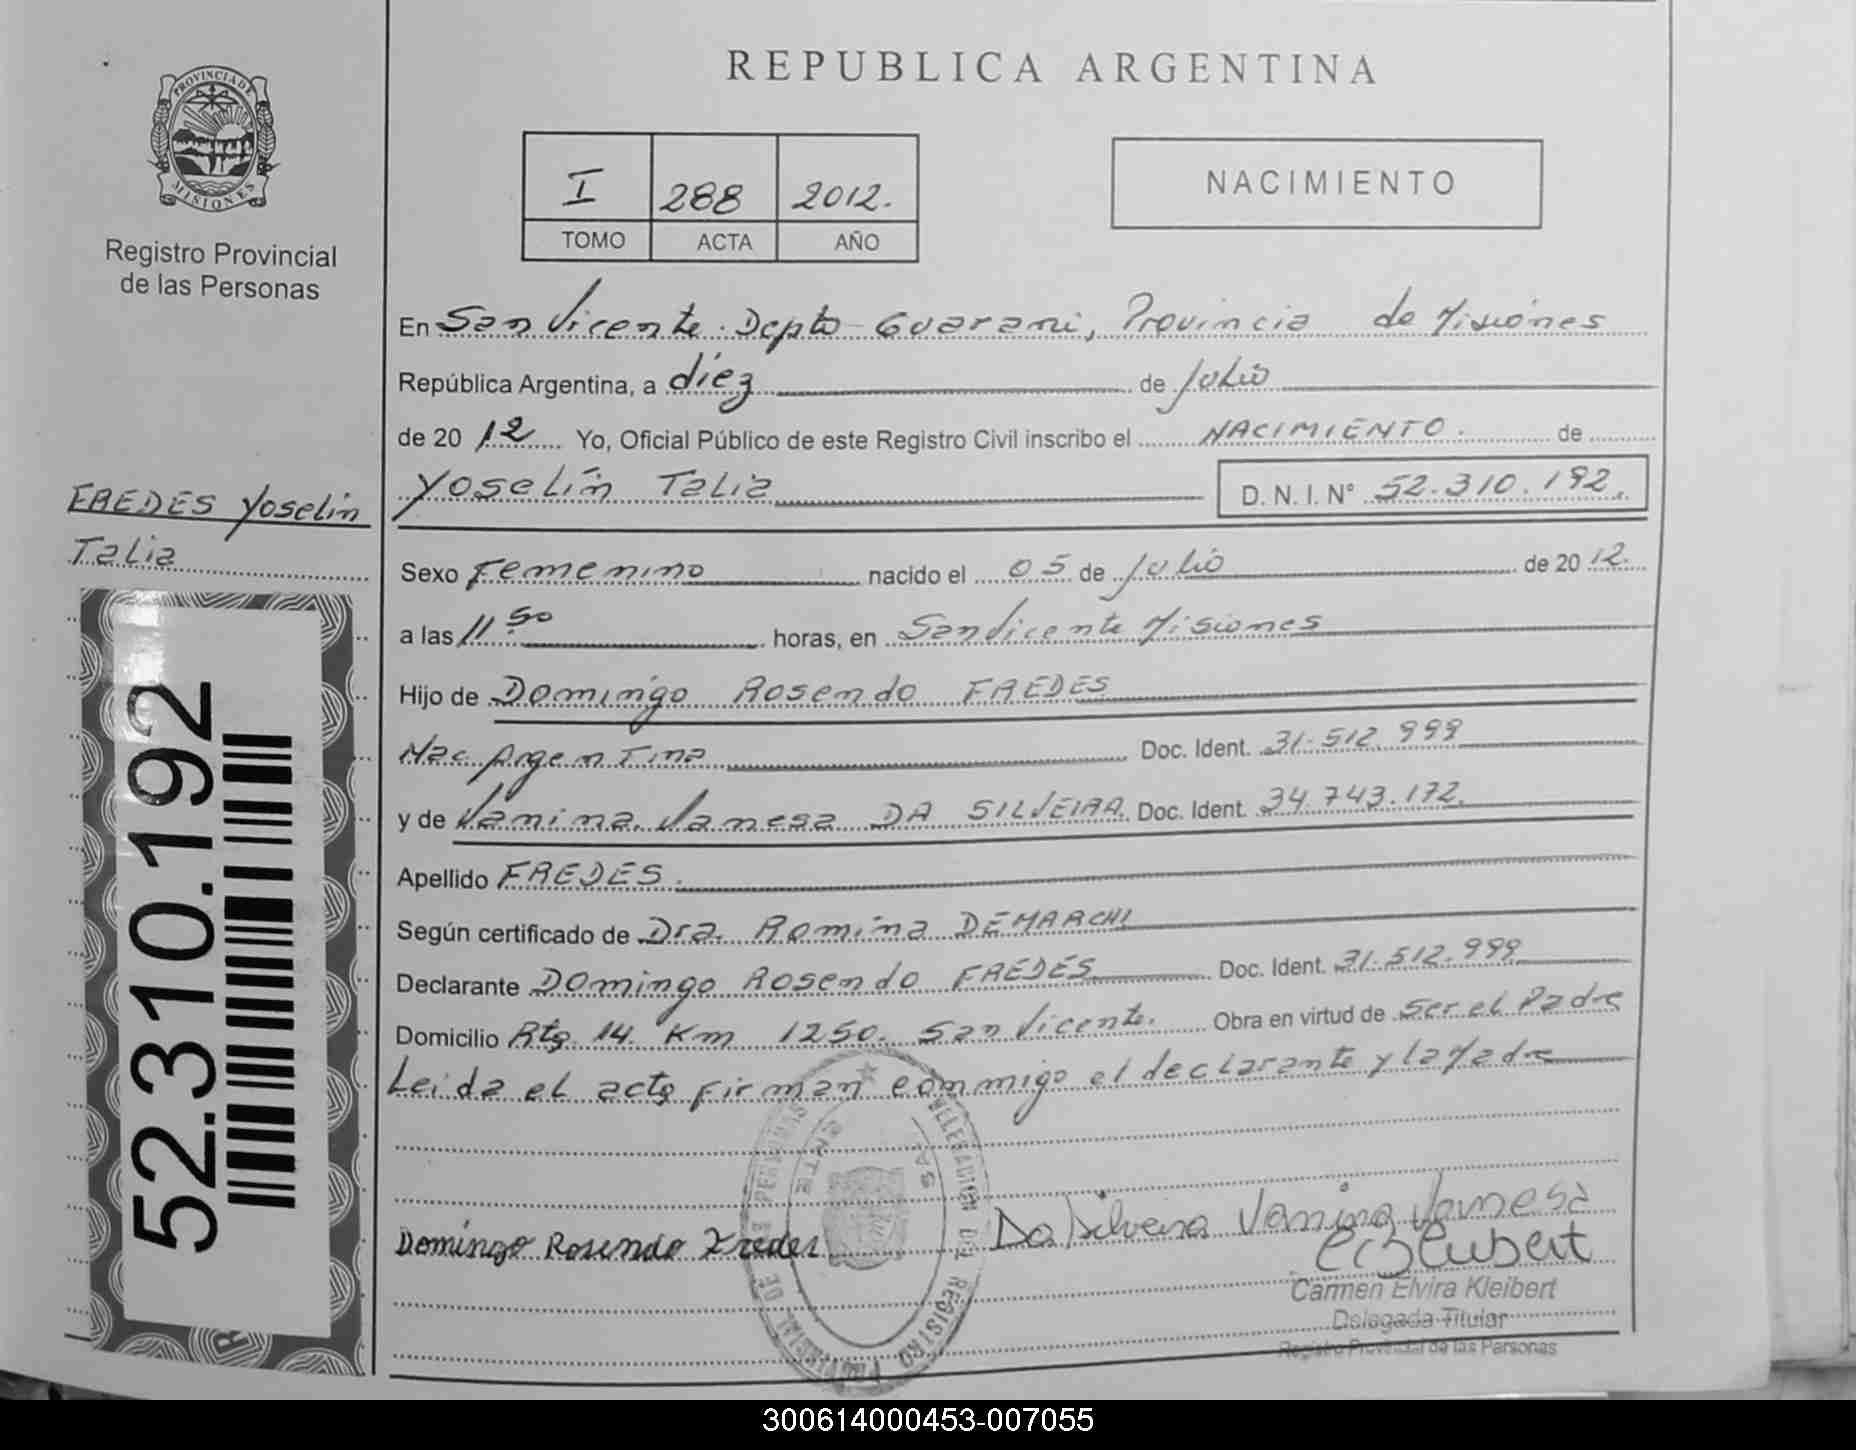 PROVINCIA DE
MISIONES
Registro Provincial
de las Personas
FREDES Yoselin
Talia
52.310.192
REPUBLICA ARGENTINA
I 288 2012.
TOMO ACTA AÑO
NACIMIENTO
En San Vicente. Depto Guarani, Provincia de Misiones
República Argentina, a diez de Julio
de 20 12 Yo, Oficial Público de este Registro Civil inscribo el NACIMIENTO. de
Yoselín Talia D. N. I. N° 52.310.192.
Sexo Femenino nacido el 05 de Julio de 20 12.
a las 11 50 horas, en San Vicente Misiones
Hijo de Domingo Rosendo FREDES
Nac Argentina Doc. Ident. 31.512.999
y de Vanina Vanesa DA SILVEIRA. Doc. Ident. 34.743.172.
Apellido FREDES.
Según certificado de Dra. Romina DEMARCHI
Declarante Domingo Rosendo FREDES Doc. Ident. 31.512.999
Domicilio Rta 14. Km 1250. San Vicente. Obra en virtud de ser el Padre
Leida el acta firman conmigo el declarante y la Madre
DELEGACION DEL REGISTRO PROVINCIAL DE PERSONAS
SAN VICENTE
Domingo Rosendo Fredes
Da Silveira Vanina Vanesa
Carmen Elvira Kleibert
Delegada Titular
Registro Provincial de las Personas
300614000453-007055